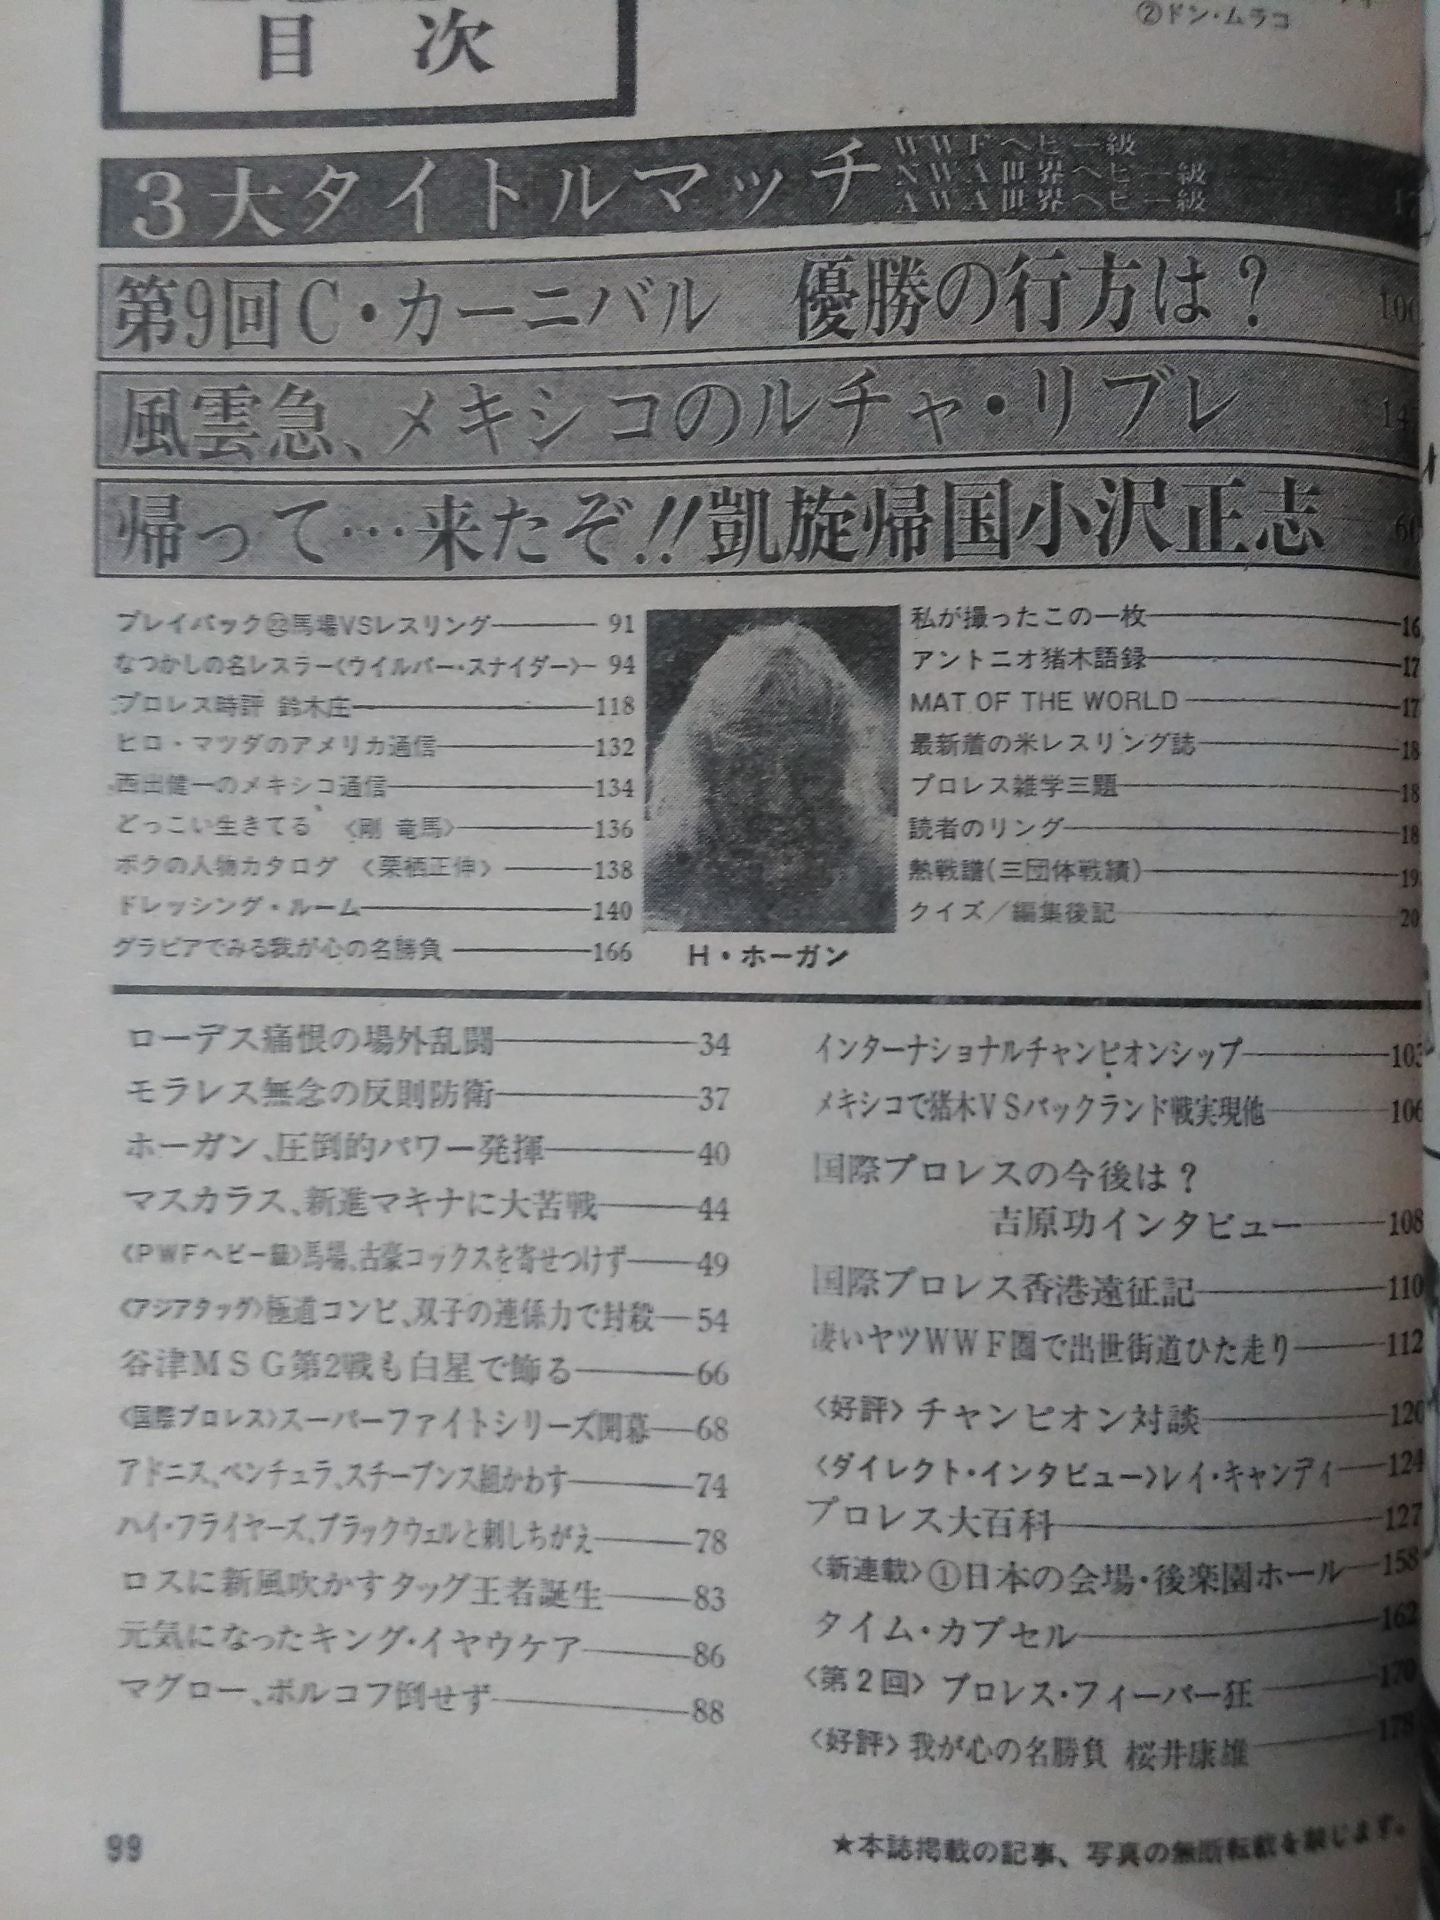 ②ドン・ムラコ
目次
3大タイトルマッチ
WWFヘビー級
NWA世界ヘビー級
AWA世界ヘビー級
第9回C・カーニバル 優勝の行方は?
風雲急、メキシコのルチャ・リブレ
帰って…来たぞ!!凱旋帰国小沢正志
プレイバック㉒馬場VSレスリング 91
なつかしの名レスラー〈ウイルバー・スナイダー〉 94
プロレス時評 鈴木庄一 118
ヒロ・マツダのアメリカ通信 132
西出健一のメキシコ通信 134
どっこい生きてる 〈剛 竜馬〉 136
ボクの人物カタログ 〈栗栖正伸〉 138
ドレッシング・ルーム 140
グラビアでみる我が心の名勝負 166
H・ホーガン
私が撮ったこの一枚
アントニオ猪木語録
MAT OF THE WORLD
最新着の米レスリング誌
プロレス雑学三題
読者のリング
熱戦譜(三団体戦績)
クイズ/編集後記
ローデス痛恨の場外乱闘 34
モラレス無念の反則防衛 37
ホーガン、圧倒的パワー発揮 40
マスカラス、新進マキナに大苦戦 44
〈PWFヘビー級〉馬場、古豪コックスを寄せつけず 49
〈アジアタッグ〉極道コンビ、双子の連係力で封殺 54
谷津MSG第2戦も白星で飾る 66
〈国際プロレス〉スーパーファイトシリーズ開幕 68
アドニス、ベンチュラ、スチーブンス組かわす 74
ハイ・フライヤーズ、ブラックウェルと刺しちがえ 78
ロスに新風吹かすタッグ王者誕生 83
元気になったキング・イヤウケア 86
マグロー、ボルコフ倒せず 88
インターナショナルチャンピオンシップ
メキシコで猪木VSバックランド戦実現他 106
国際プロレスの今後は?
吉原功インタビュー 108
国際プロレス香港遠征記 110
凄いヤツWWF圏で出世街道ひた走り 112
〈好評〉チャンピオン対談 120
〈ダイレクト・インタビュー〉レイ・キャンディ 124
プロレス大百科 127
〈新連載〉①日本の会場・後楽園ホール 158
タイム・カプセル 162
〈第2回〉プロレス・フィーバー狂 170
〈好評〉我が心の名勝負 桜井康雄 178
99
★本誌掲載の記事、写真の無断転載を禁じます。